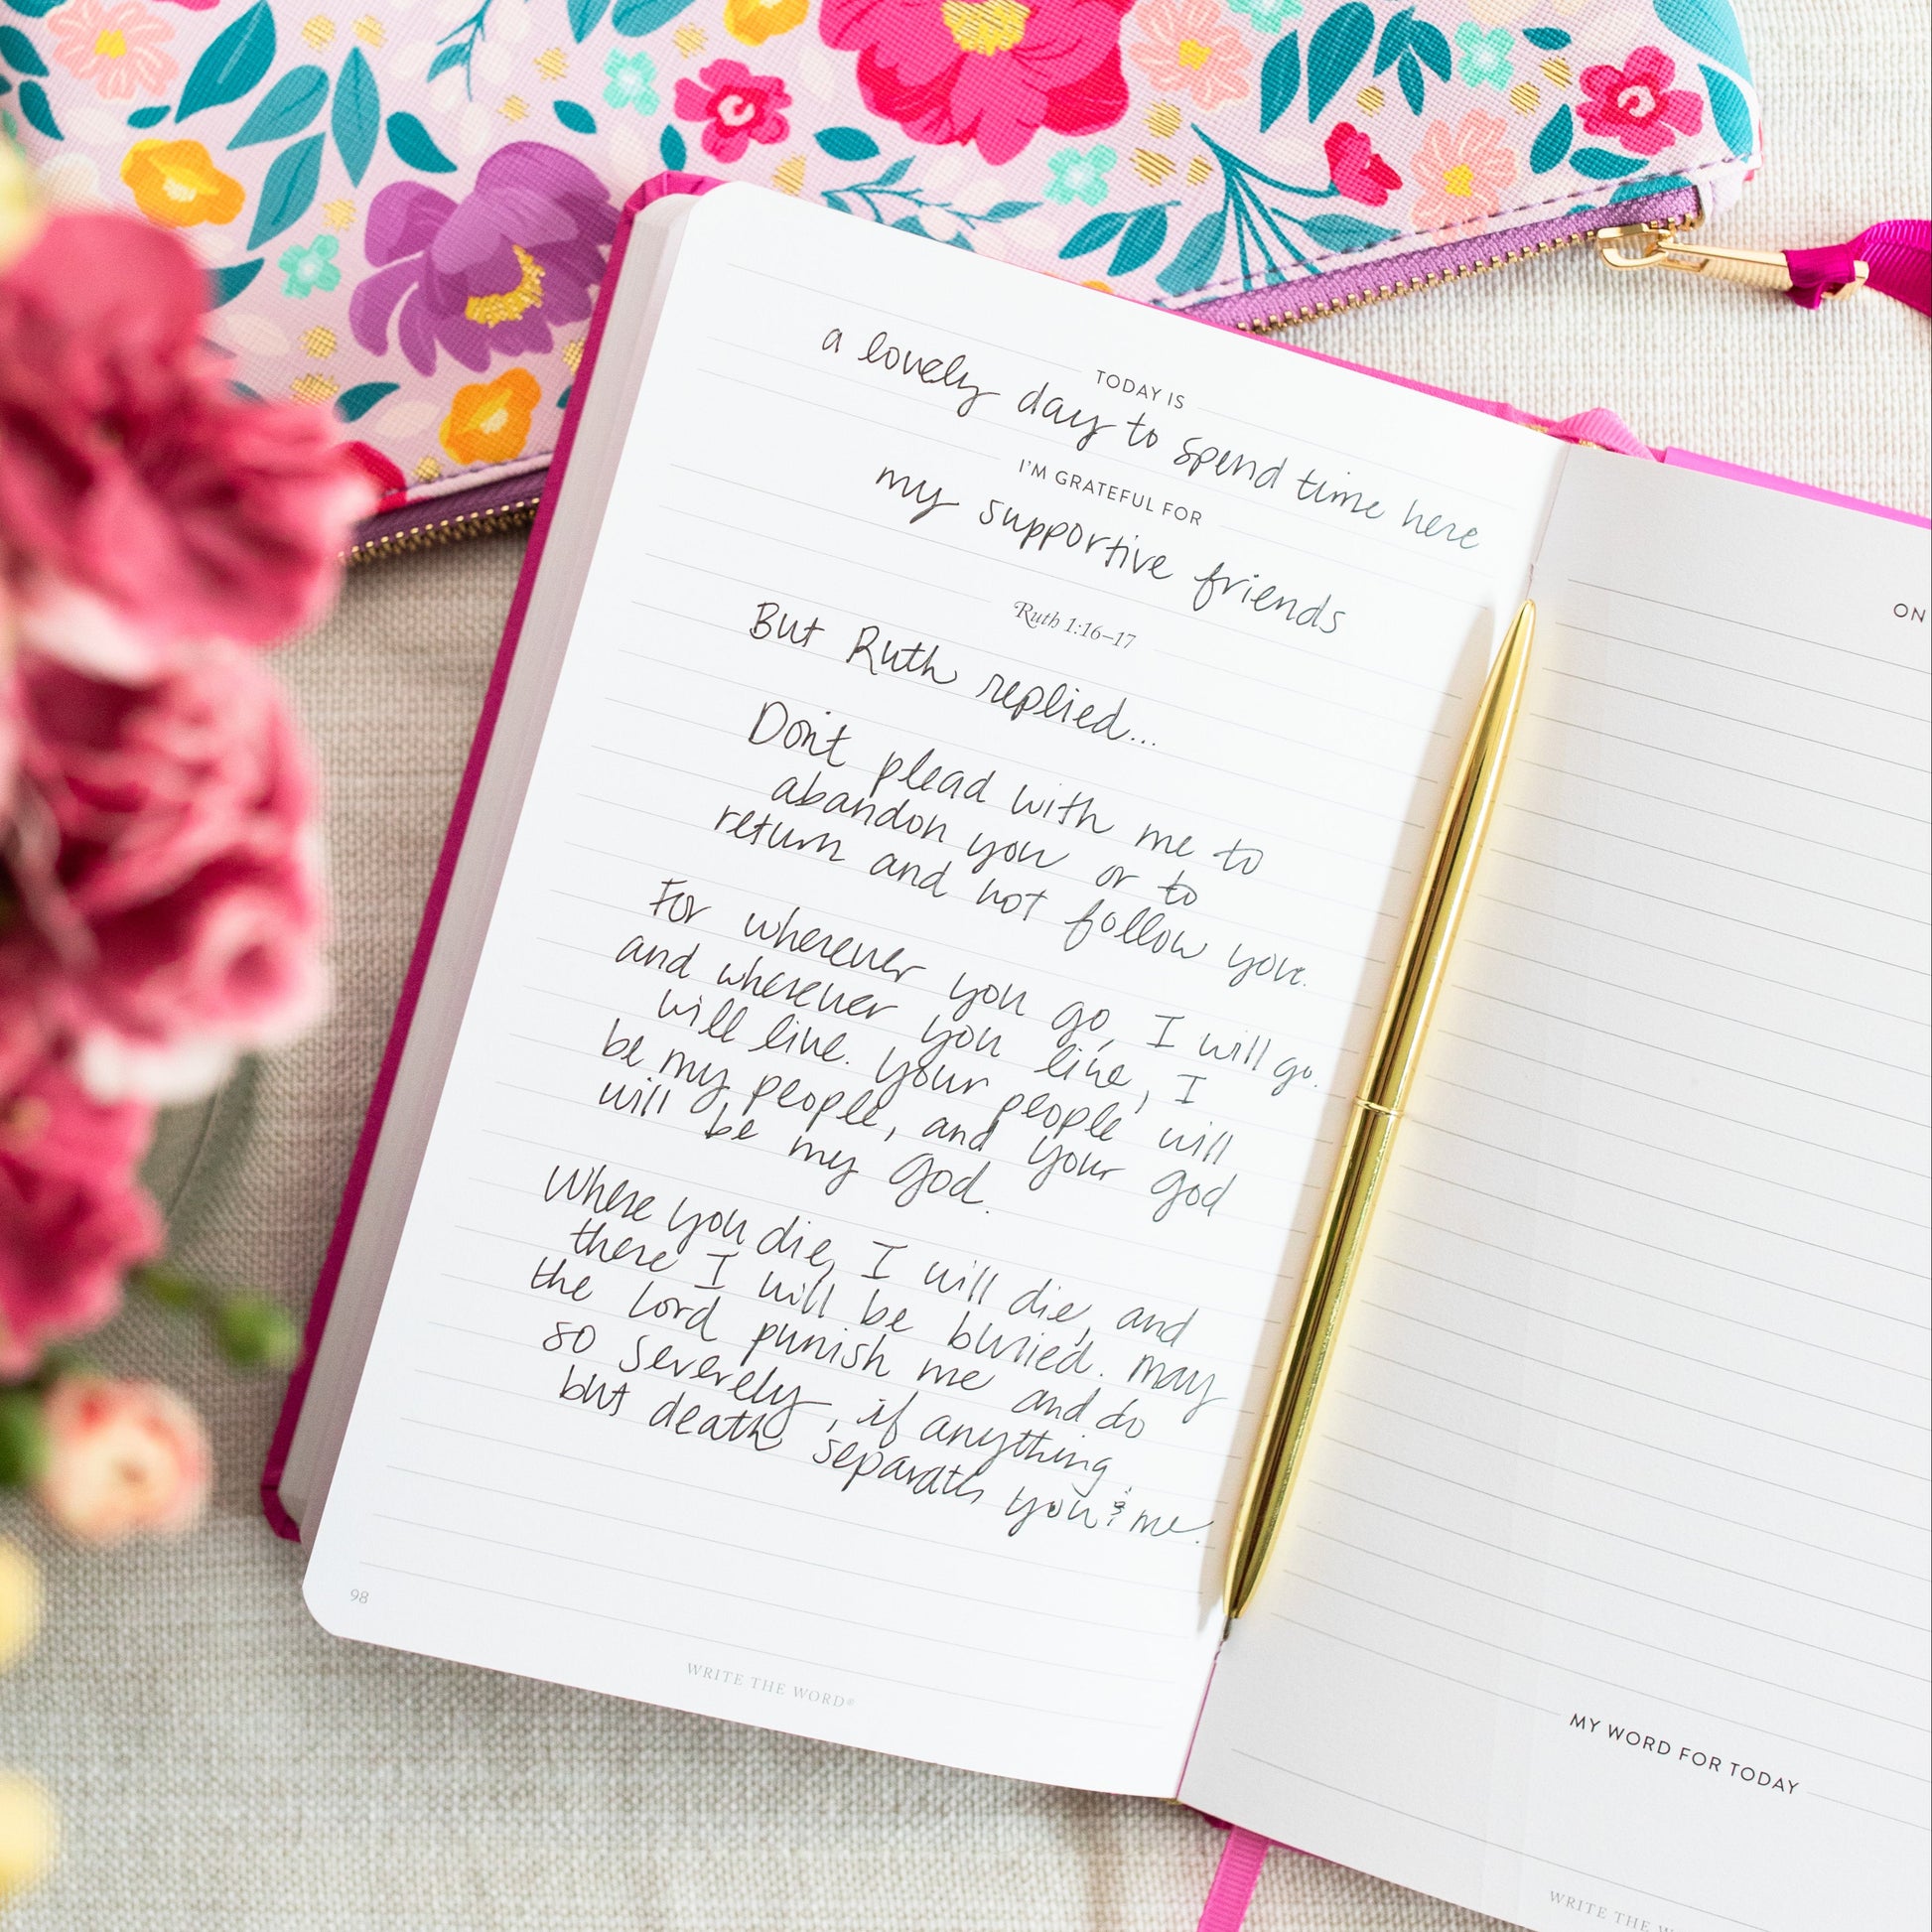 TODAY IS
a lovely day to spend time here
I'M GRATEFUL FOR
my supportive friends
Ruth 1:16–17
But Ruth replied...
Don't plead with me to
abandon you or to
return and not follow you.
For wherever you go, I will go.
and wherever you live, I
will live. Your people will
be my people, and your God
will be my God.
Where you die, I will die, and
there I will be buried. May
the Lord punish me and do
so severely, if anything
but death separates you & me.
98
WRITE THE WORD®
ON
MY WORD FOR TODAY
WRITE THE W